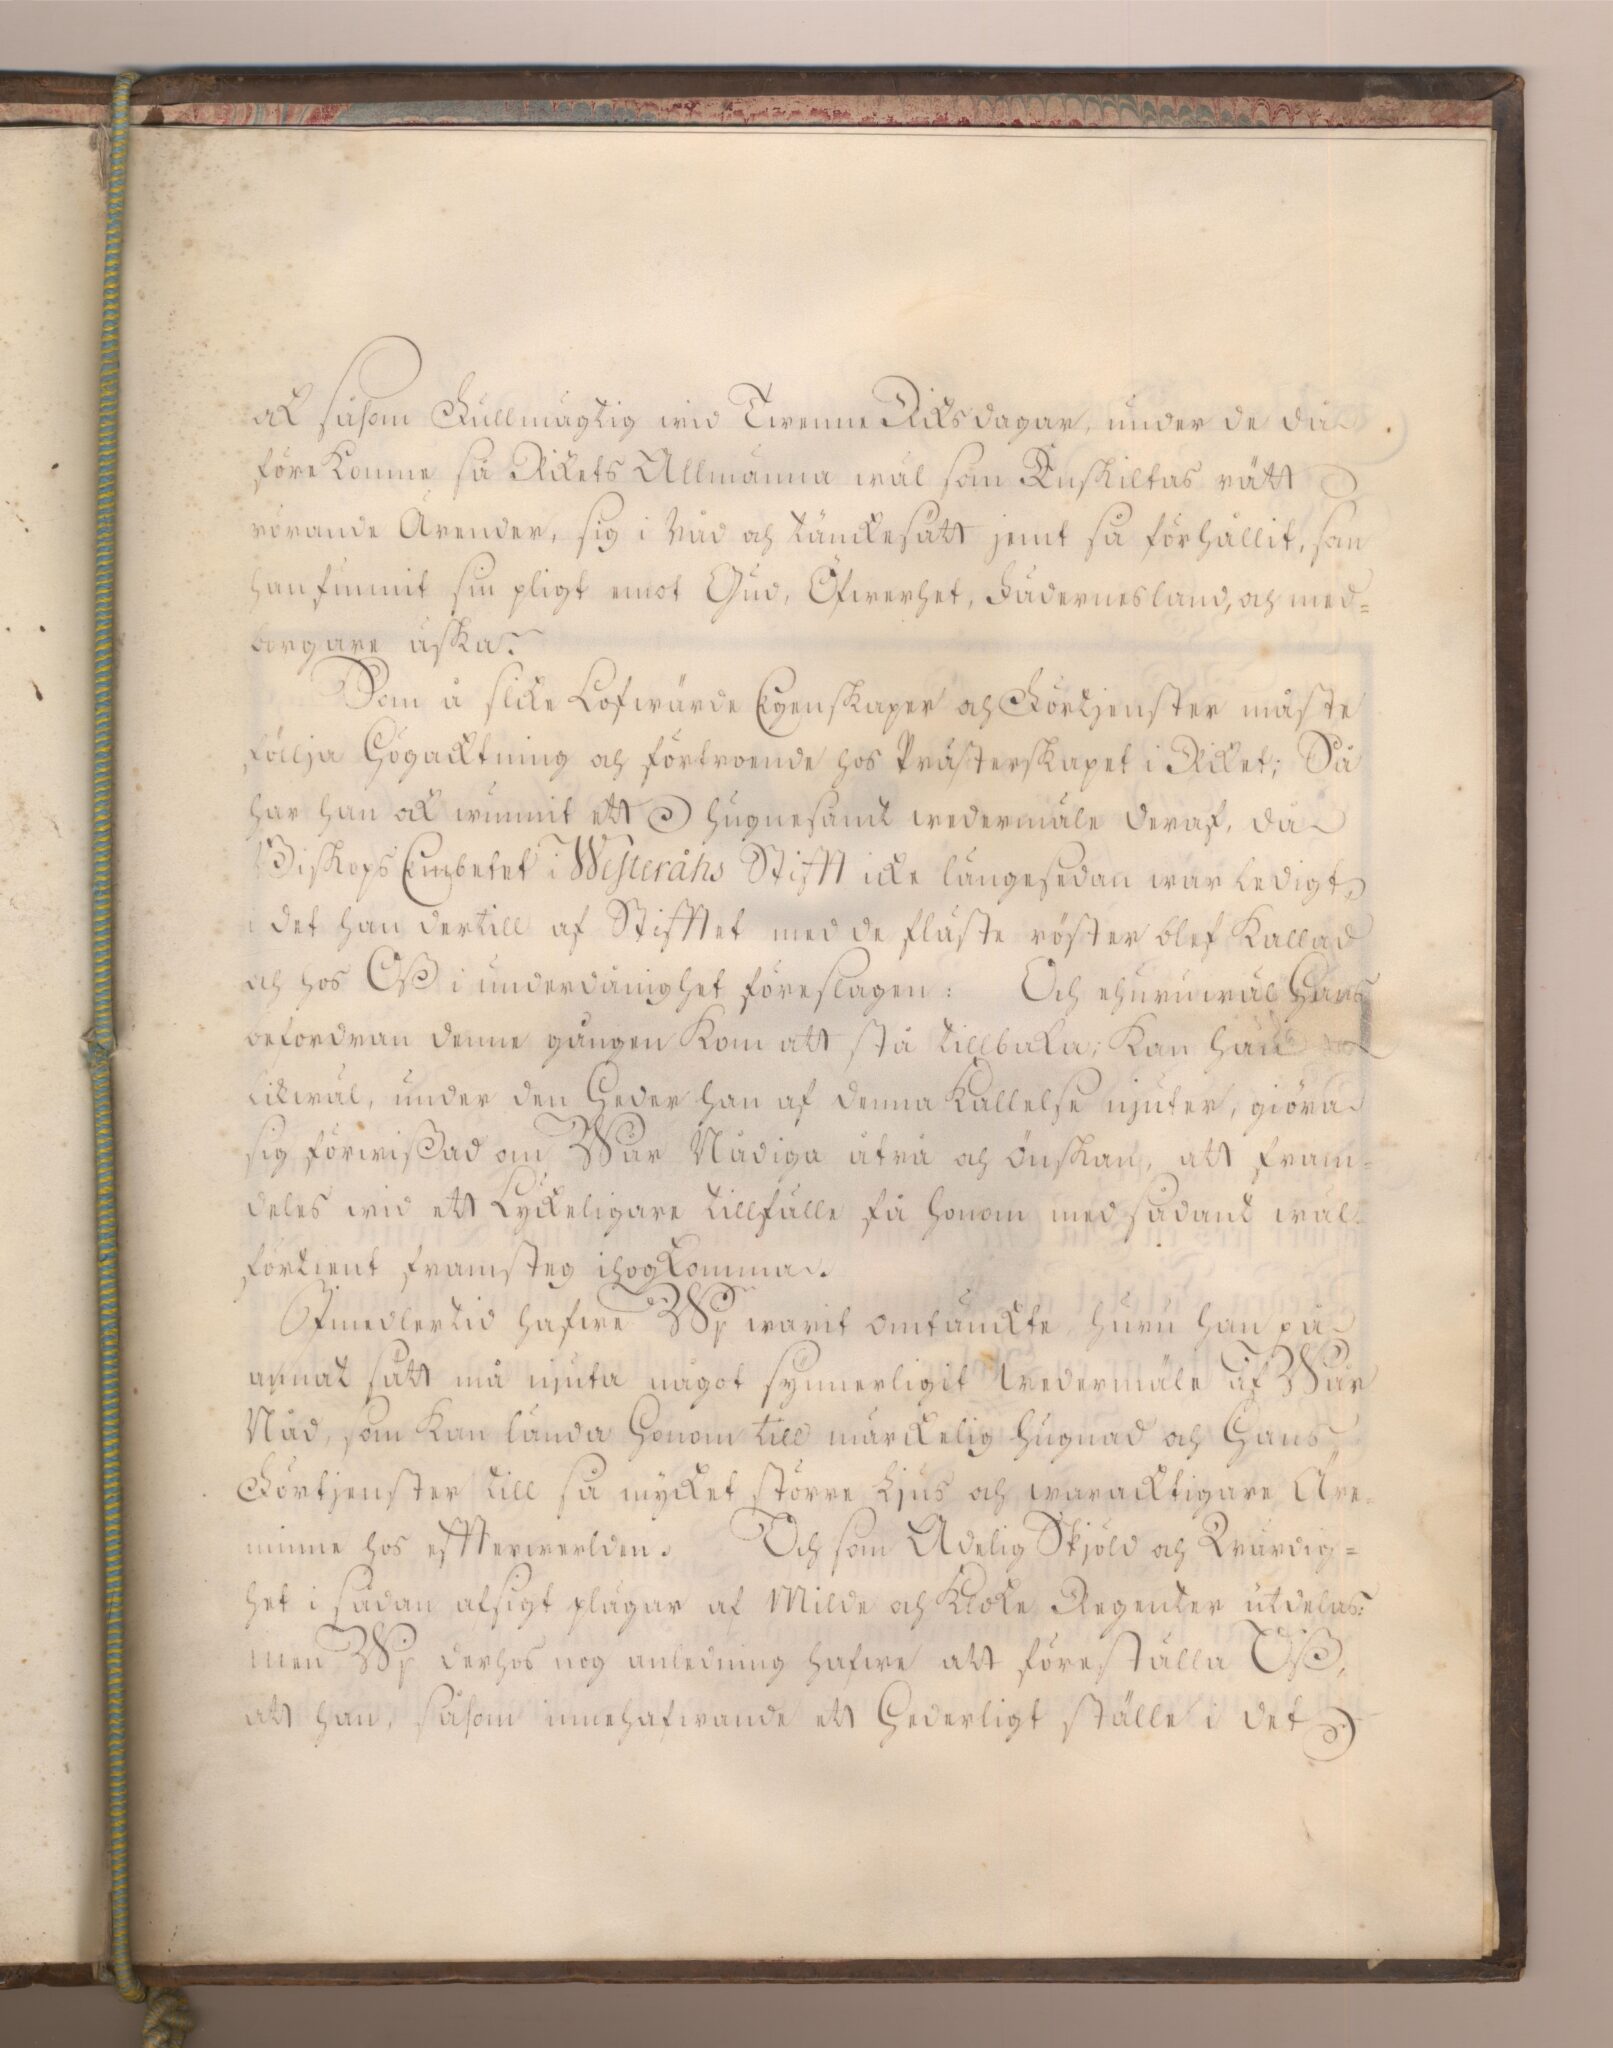 ok såsom Fullmägtig wid Twenne Riksdagar, under de då
förekomne så Rikets Allmänna wäl som Enskiltas rätt
rörande Ärender, sig i råd och tänckesätt jemt så förhållit, som
han funnit sin pligt emot Gud, Öfwerhet, Fädernesland, och med=
borgare äska.
Som å slike Lofwärde Egenskaper och Förtjenster måste
föllja Högacktning och förtroende hos Prästerskapet i Riket; Så
har han ok wunnit ett hugnesamt wedermäle deraf, då
Biskops Embetet i Westeråhs Stifft icke längesedan war ledigt,
i det han dertill af Stifftet med de fläste röster blef Kallad
och hos Oß i underdånighet föreslagen: Och ehuruwäl Hans
befordran denne gången Kom att stå tillbaka; Kan han
likwäl, under den Heder han af denna Kallelse njuter, giöra
sig förwißad om Wår Nådiga åtrå och önskan, att fram=
deles wid ett Lyckeligare tillfälle få honom med sådant wäl
förtient framsteg ihogkomma.
Jmedlertid hafwe Wij warit omtänckte, huru han på
annat sätt må njuta något synnerligit wedermäle af Wår
Nåd, som Kan lända Honom till märckelig hugnad och Hans
Förtjenster till så mycket större Ljus och waracktigare Äre=
minne hos effterwerlden. Och som Adelig Skjöld och Wärdig=
het i sådan afsigt plägar af Milde och Kloke Regenter utdelas:
men Wij derhos nog anledning hafwe att föreställa Oß,
att han, såsom innehafwande ett Hederligt ställe i det